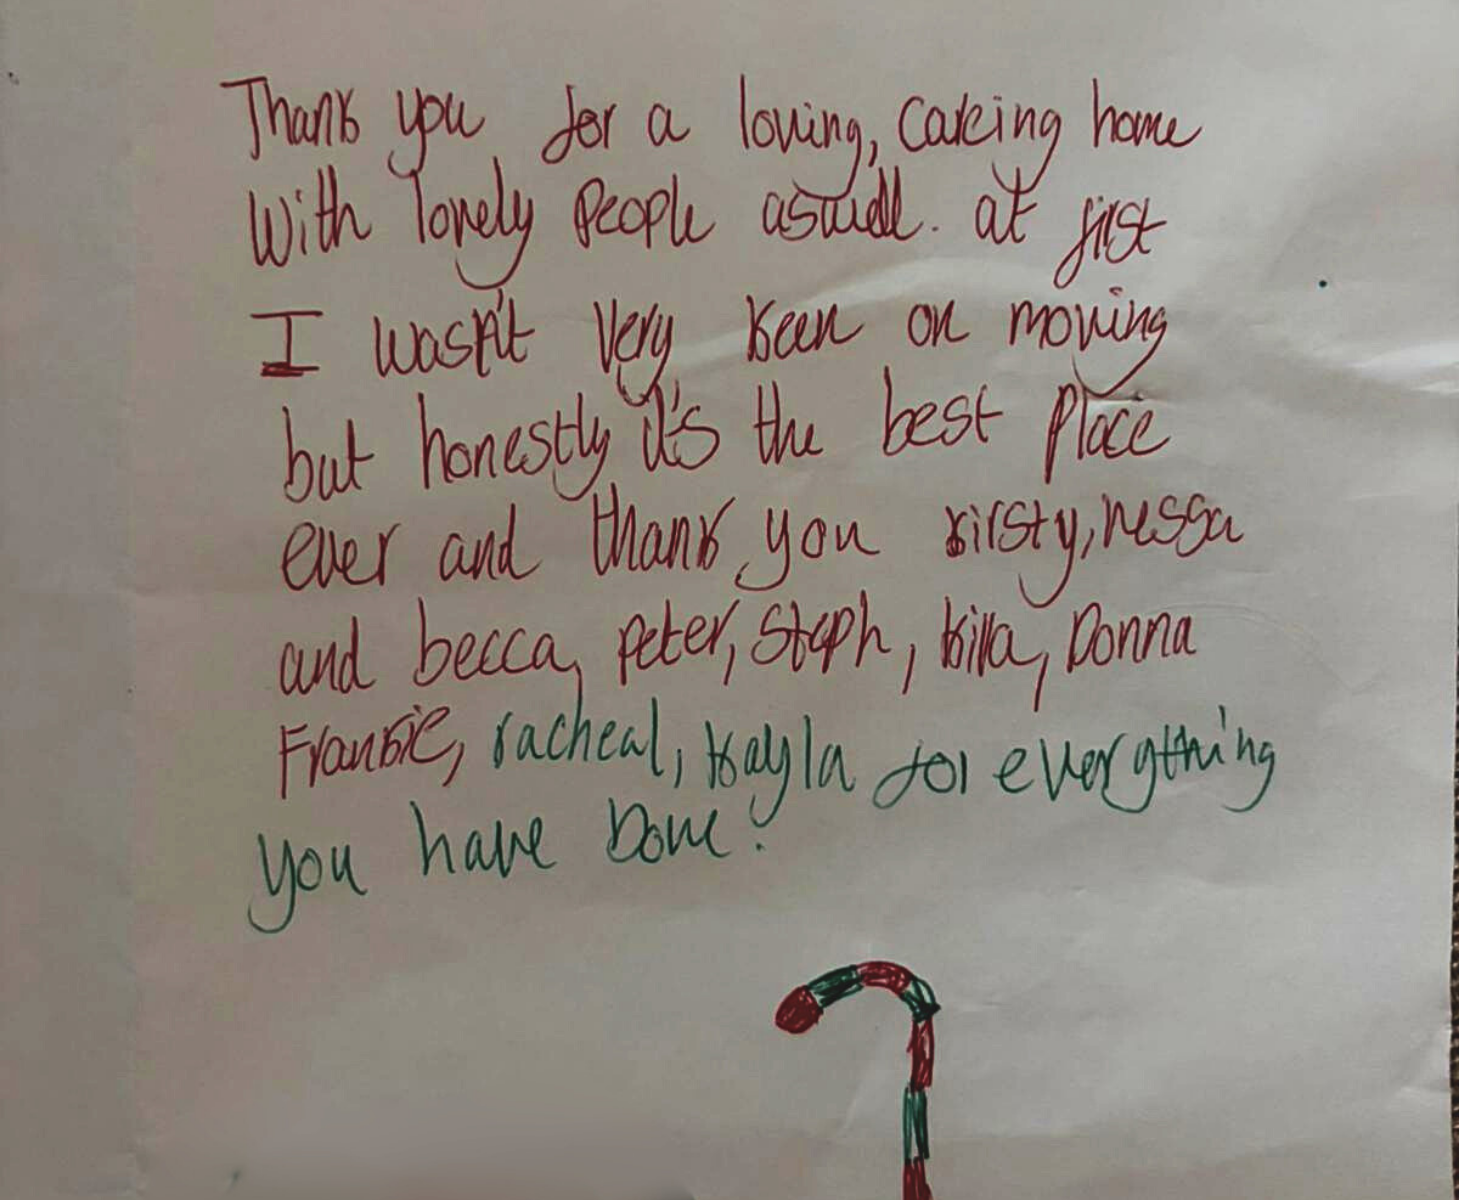 Thank you for a loving, careing home
With lovely People aswell. at first
I wasn't Very keen on moving
but honestly it's the best Place
ever and thank you kirsty, nessa
and becca, peter, Steph, killa, Donna
Frankie, racheal, kayla for everything
you have Done.